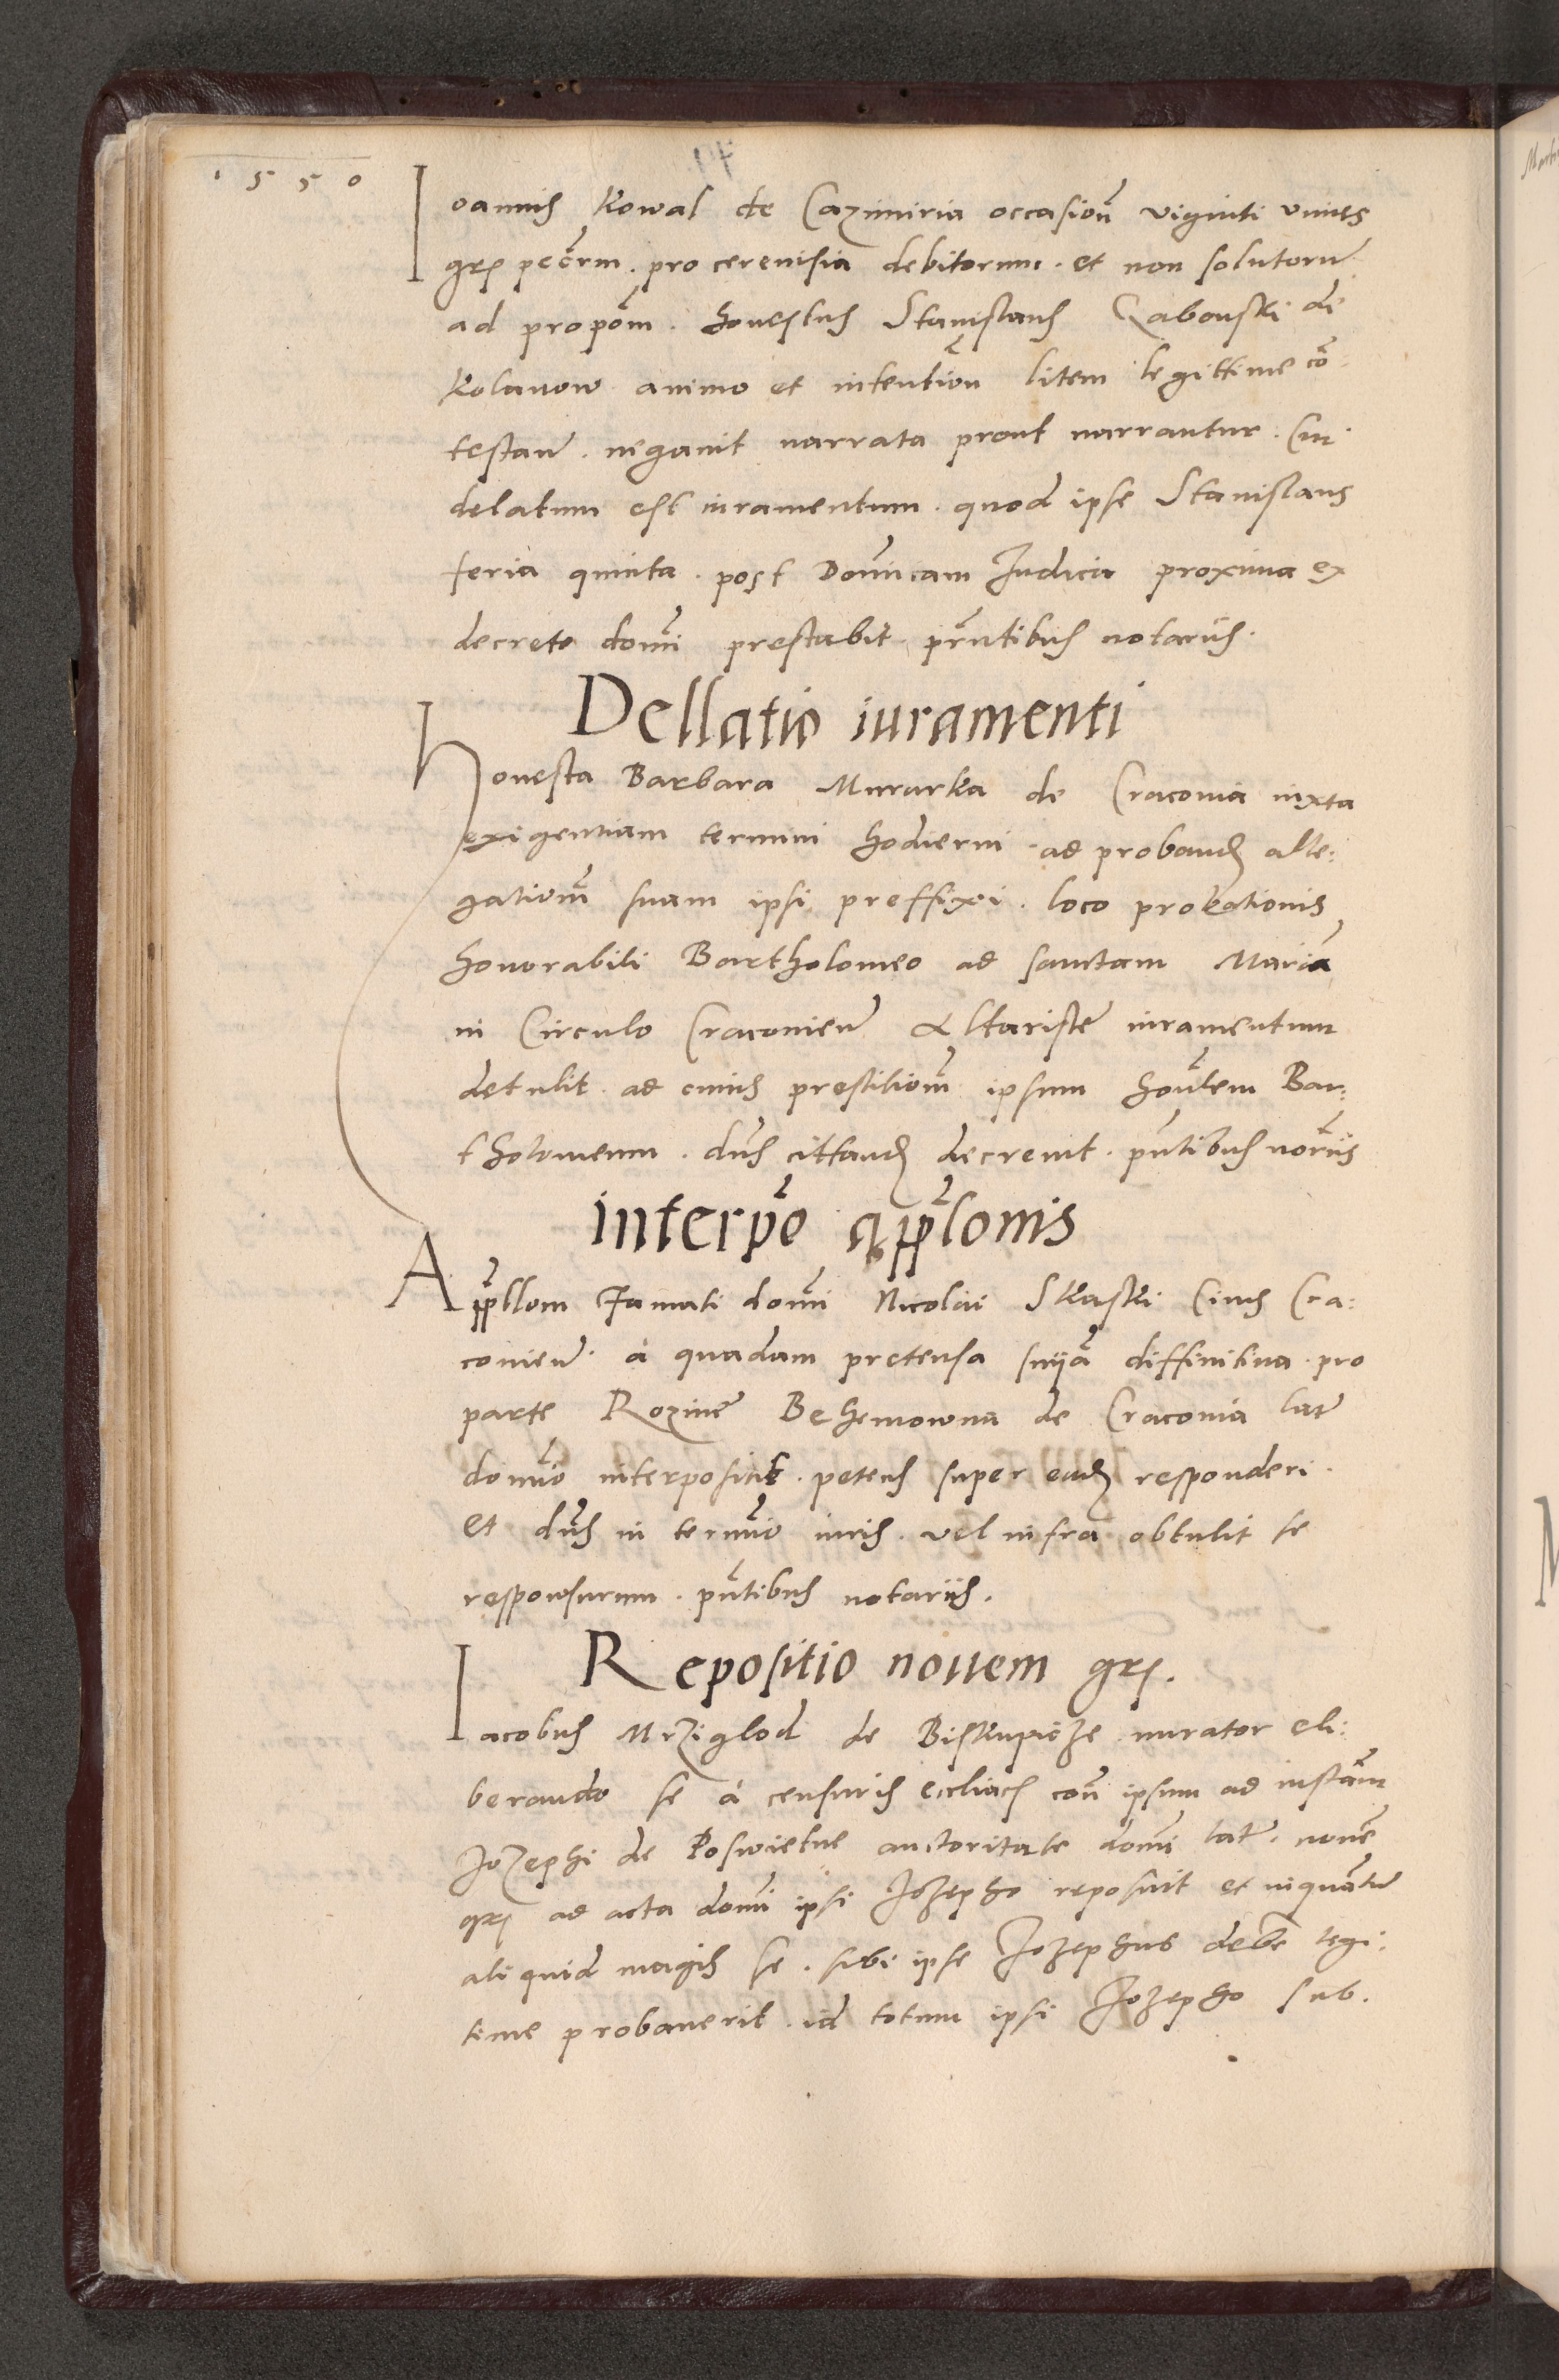 1550
Ioannis Kowal de Cazimiria occasioñ viginti vnius
grꝭ pccrm̃. pro cerevisia debitorum. et non solutorũ
ad propõm. honestus Stanislaus Rabowski de
Kolanow animo et intentioñ litem legittime cõ
testañ. negavit narrata prout narrantur. Cui
delatum est iuramentum. quod ipse Stanislaus
feria quinta. post Domĩcam Iudica proxima ex
decreto domĩ prestabit prñtibus notariis.
Dellatio iuramenti
Honesta Barbara Murarka de Cracovia iuxta
exigentiam termini hodierni ad probandꝭ alle:
gatioñm suam ipsi preffixi. loco probationis
honorabili Bartholomeo ad sanctam Mariã
in Circulo Cracovieñ Altariste iuramentum
detulit ad cuius prestitioñm ipsum hoñlem Bar:
tholomeum. dñs cittandꝭ decrevit. pñtibus norĩis
interpõ appl̃onis
Appll̃om Famati domĩ Nicolai Skarski Civis Cra:
covieñ. a quadam pretensa sniĩa diffinitiva. pro
parte Rozine Behemowna de Cracovia lata
domĩo interposuit. petens super eadꝭ responderi.
et dñs in termĩo iuris. vel infra obtulit se
responsurum. pñtibus notariis.
Repositio novem grꝭ.
Iacobus Mrziglod de Biskupicze murator eli:
berando se a censuris eccliacꝭ coñ ipsum ad instãm
Jozephi de Poswietne auctoritate domĩ latꝭ. novẽ
grꝭ ad acta domĩ ipsi Jozepho reposuit et inquãtũ
aliquid magis se. sibi ipse Jozephus debẽ legi:
time probaverit. id totum ipsi Jozepho sub.